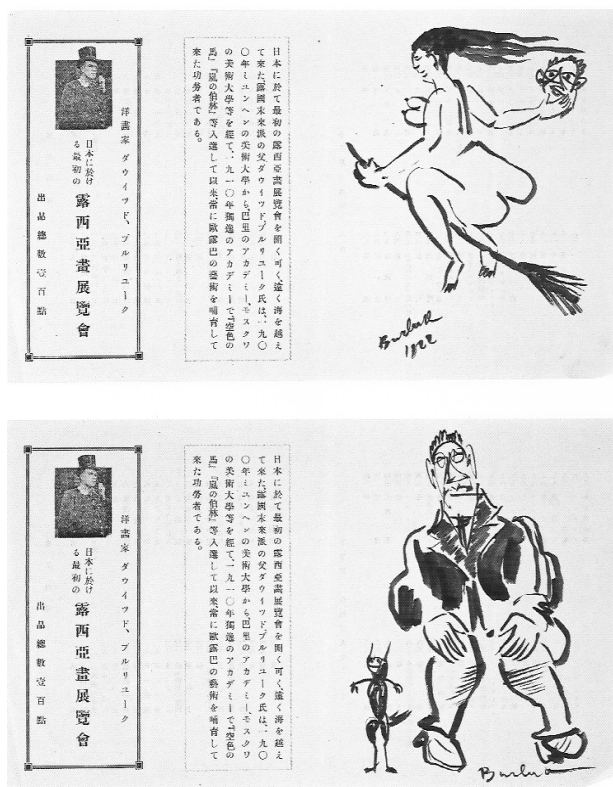 日本に於て最初の露西亞畫展覽會を開く可く、遠く海を越え
て來た、露國未來派の父ダウイツド、ブルリユーク氏は、一九〇
〇年ミユンヘンの美術大學から、巴里のアカデミー、モスクワ
の美術大學等を經て、一九一〇年獨逸のアカデミーで『空色の
馬』『嵐の伯林』等入選して以來、常に歐露巴の藝術を哺育して
來た功勞者である。
洋畫家 ダウイツド、ブルリユーク
日本に於け
る最初の
露西亞畫展覽會
出品總數壹百點
Burliuk
1922
日本に於て最初の露西亞畫展覽會を開く可く、遠く海を越え
て來た、露國未來派の父ダウイツド、ブルリユーク氏は、一九〇
〇年ミユンヘンの美術大學から、巴里のアカデミー、モスクワ
の美術大學等を經て、一九一〇年獨逸のアカデミーで『空色の
馬』『嵐の伯林』等入選して以來、常に歐露巴の藝術を哺育して
來た功勞者である。
洋畫家 ダウイツド、ブルリユーク
日本に於け
る最初の
露西亞畫展覽會
出品總數壹百點
Burliuk